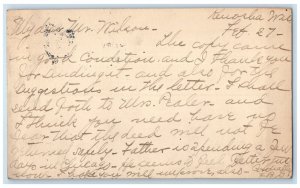 Kenosha Wis
My dear Mr. Wilson - Feb 27 -
The copy came
in good Condition and I thank you
for and also for the
suggestions in the letter. I shall
send both to Mrs. and
I think you need have no
fear that the deed will not be
safely. Father is spending a few
days in to feel better but
now I hope you will improve, also -